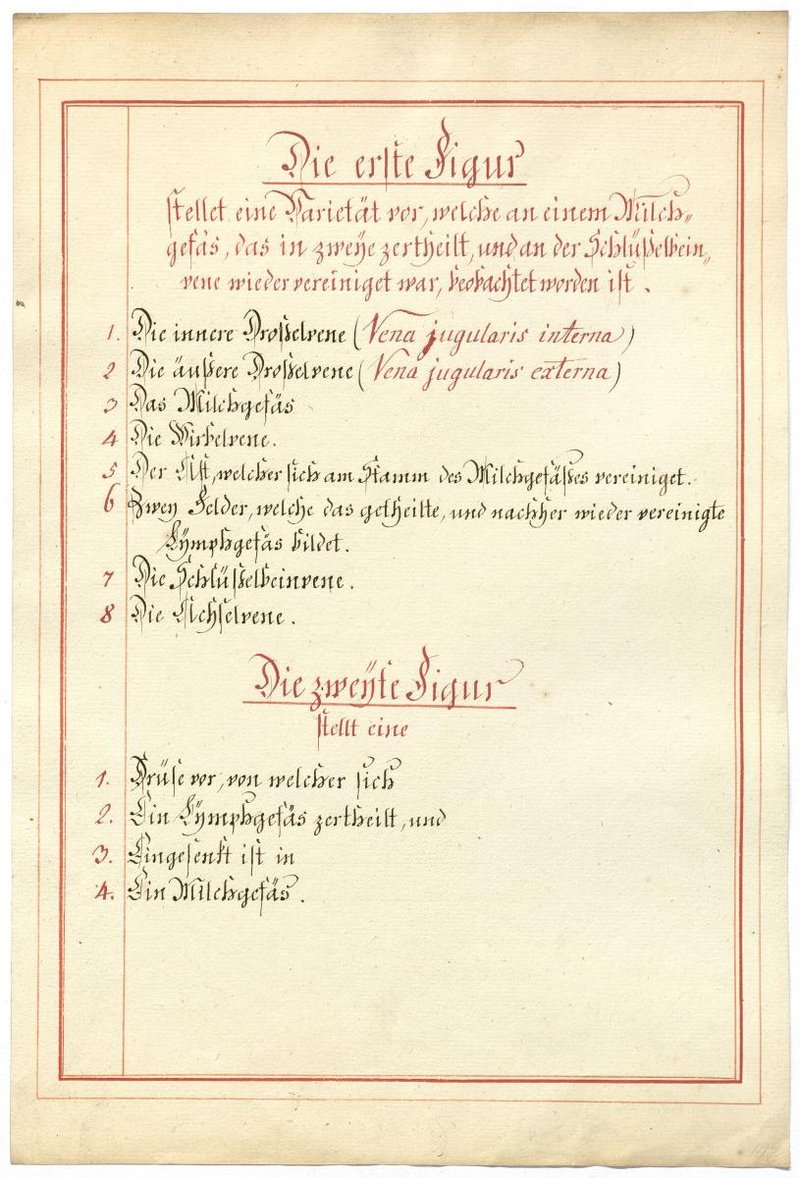 Die erste Figur
stellet eine Varietät vor, welche an einem Milch„
gefäs, das in zweye zertheilt, und an der Schlüßelbein„
vene wieder vereiniget war, beobachtet worden ist.
1. Die innere Droßelvene (Vena jugularis interna)
2 Die äußere Droßelvene (Vena jugularis externa)
3 Das Milchgefäs
4 Die Wirbelvene.
5 Der Ast, welcher sich am Stamm des Milchgefäßes vereiniget.
6 Zwey Felder, welche das getheilte, und nachher wieder vereinigte
Lymphgefäs bildet.
7 Die Schlüßelbeinvene.
8 Die Achselvene.
Die zweÿte Figur
stellt eine
1. Drüse vor, von welcher sich
2. Ein Lymphgefäs zertheilt, und
3. Eingesenkt ist in
4. Ein Milchgefäs.